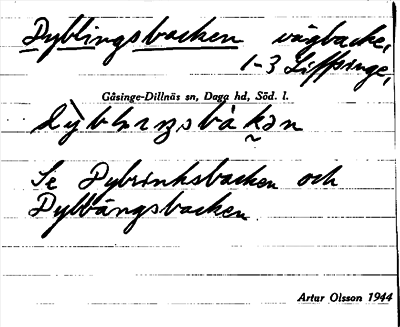 Dyblingsbacken vägbacke,
1-3 Liffsinge,
Gåsinge-Dillnäs sn, Daga hd, Söd. l.
Se Dybrinksbacken och
Dyltängsbacken.
Artur Olsson 1944